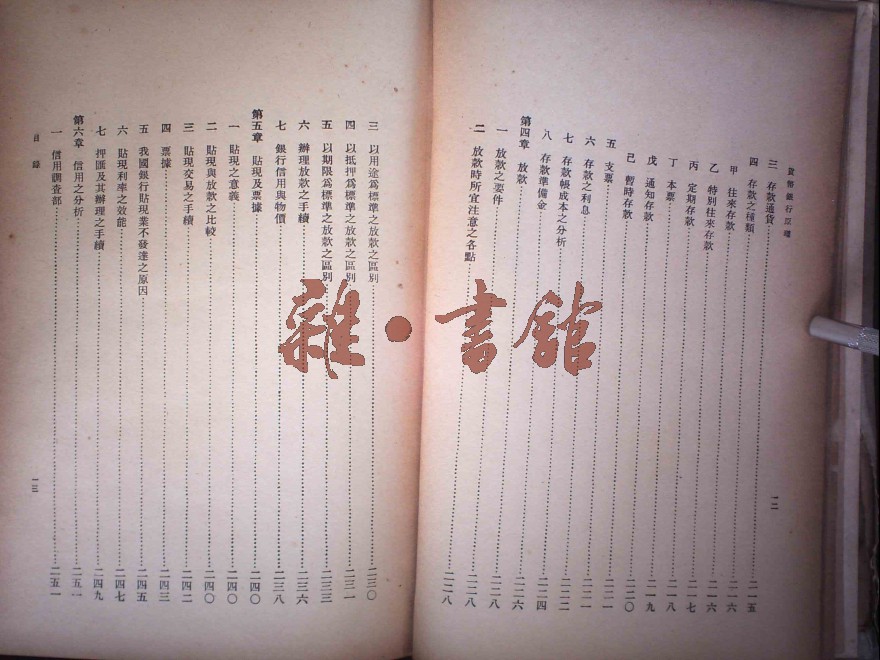 貨幣銀行原理
三 存款通貨 二一五
四 存款之種類 二一六
甲 往來存款 二一六
乙 特別往來存款 二一七
丙 定期存款 二一八
丁 本票 二一九
戊 通知存款 二二〇
己 暫時存款 二二一
五 支票 二二一
六 存款之利息 二二二
七 存款帳成本之分析 二二四
八 存款準備金 二二六
第四章 放款 二二八
一 放款之要件 二二八
二 放款時所宜注意之各點 二二八
一二
三 以用途爲標準之放款之區別 二三〇
四 以抵押爲標準之放款之區別 二三一
五 以期限爲標準之放款之區別 二三三
六 辦理放款之手續 二三六
七 銀行信用與物價 二三八
第五章 貼現及票據 二四〇
一 貼現之意義 二四〇
二 貼現與放款之比較 二四〇
三 貼現交易之手續 二四二
四 票據 二四三
五 我國銀行貼現業不發達之原因 二四五
六 貼現利率之效能 二四七
七 押匯及其辦理之手續 二四九
第六章 信用之分析 二五一
一 信用調查部 二五一
目錄
一三
雜·書館